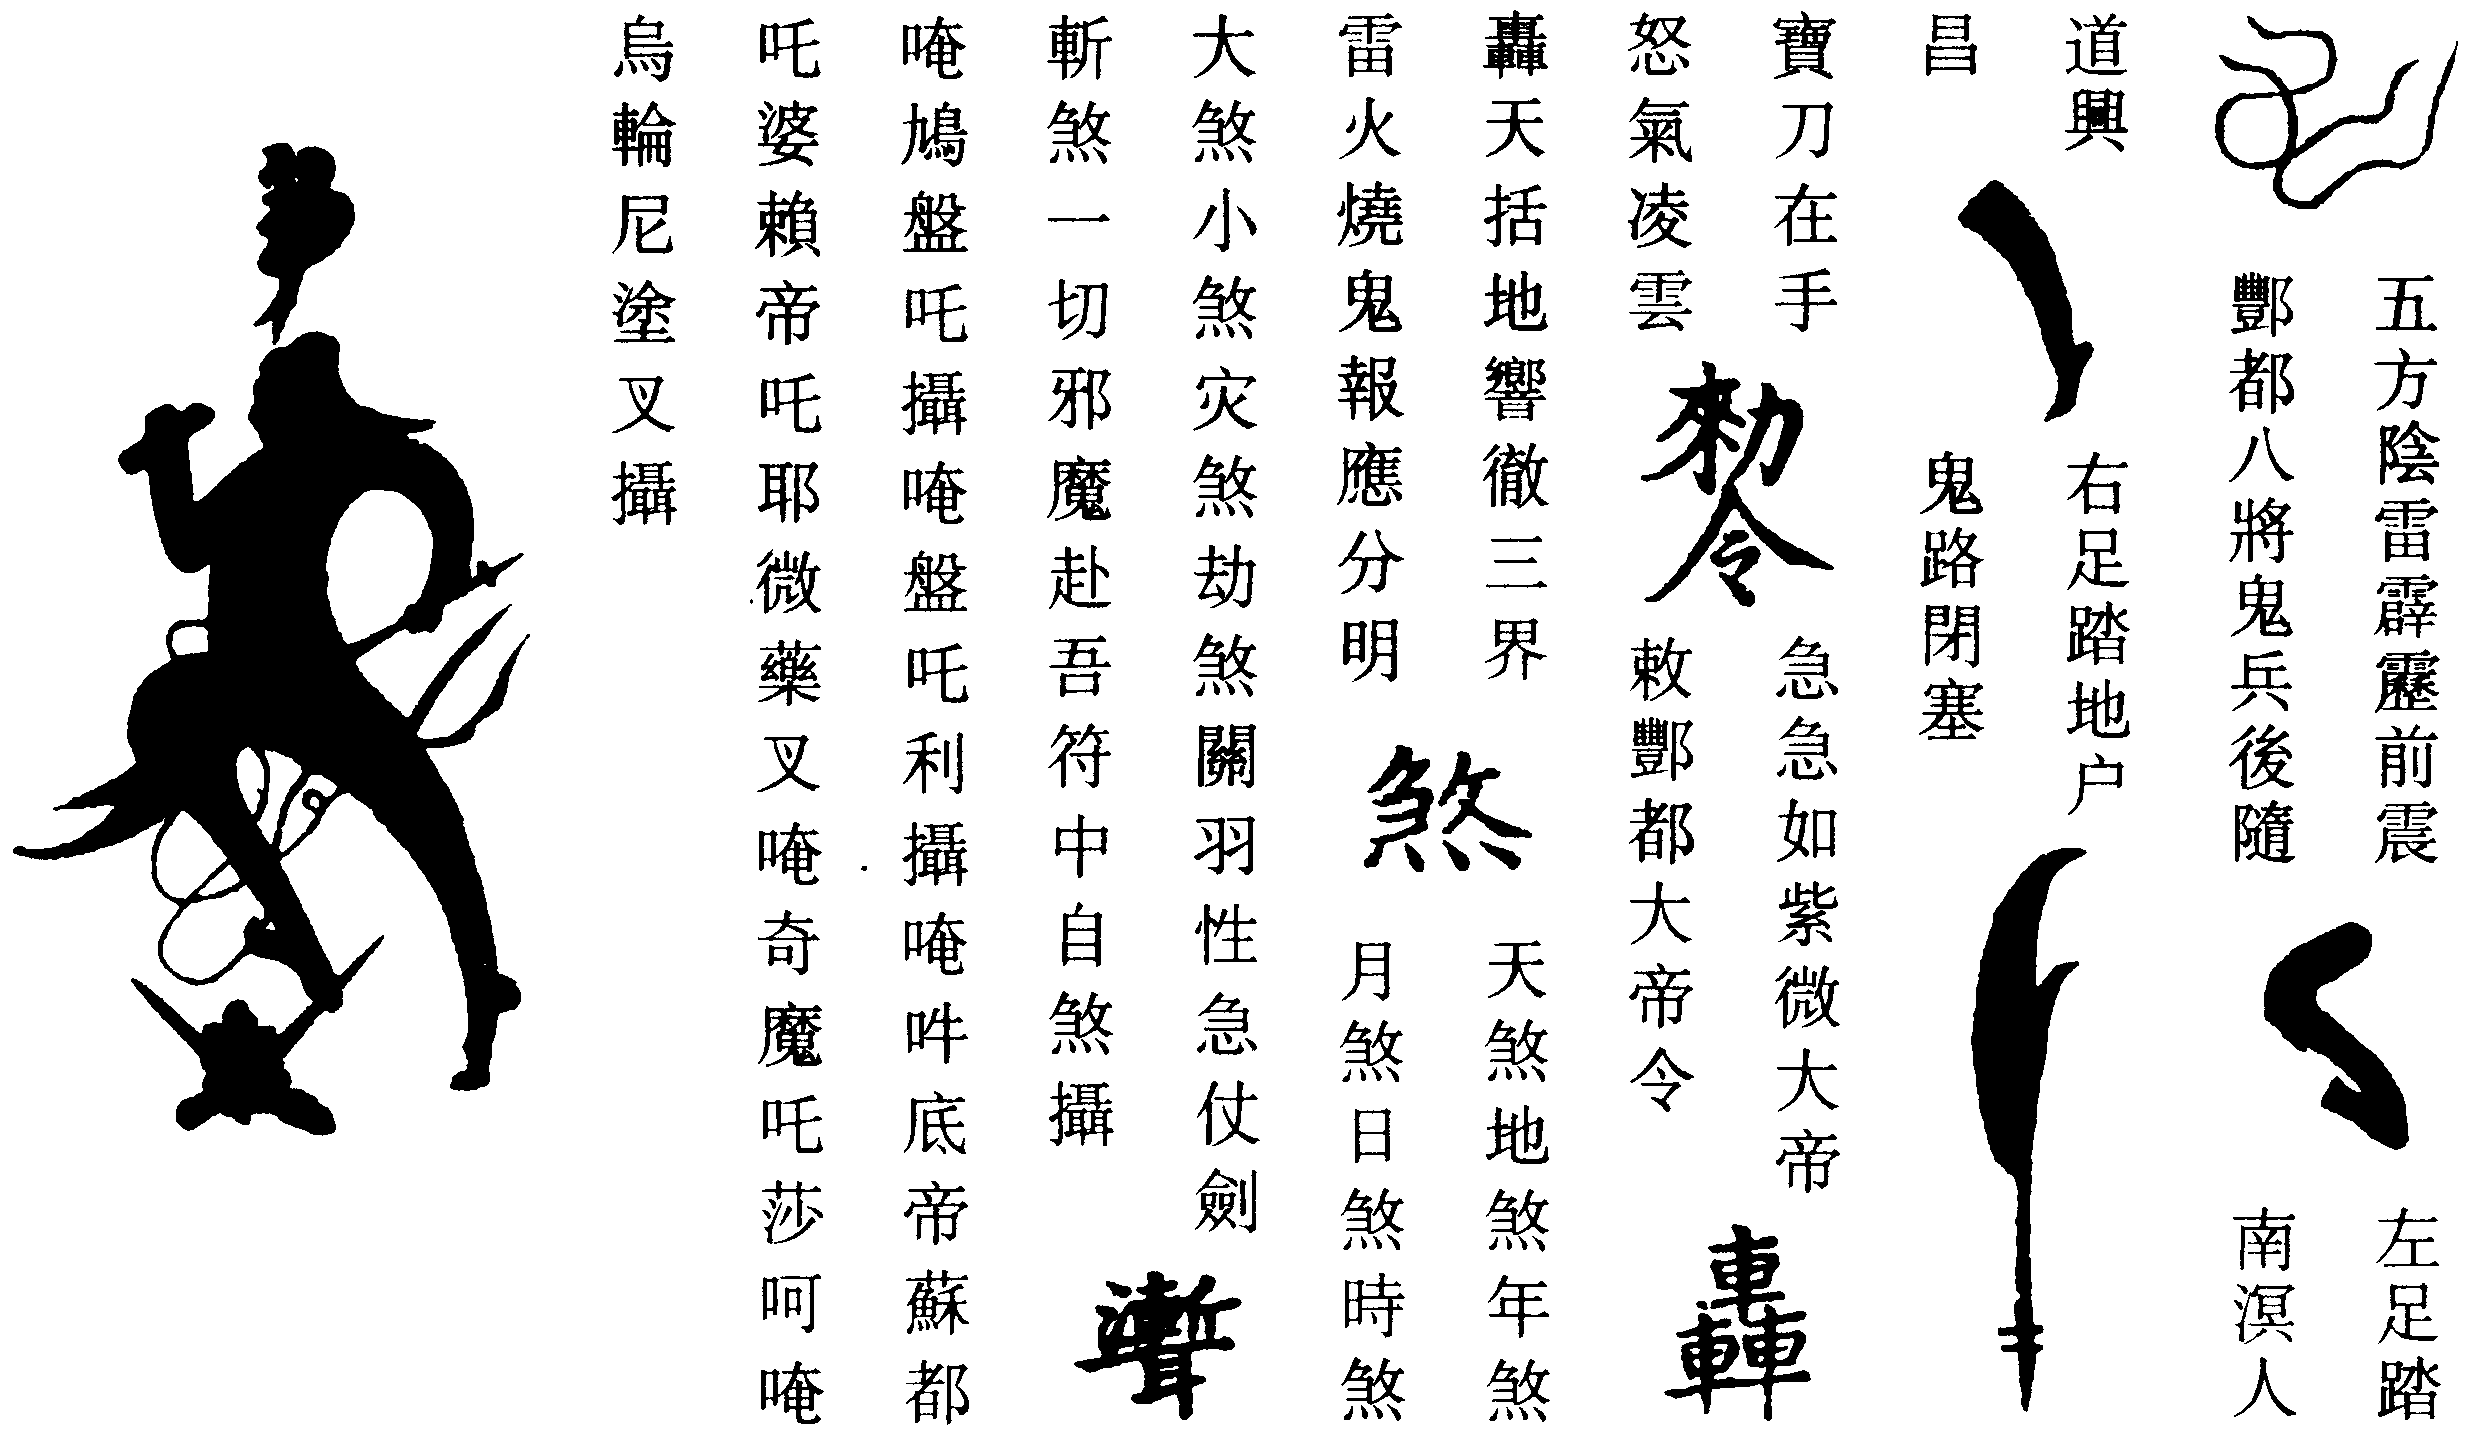 五方陰雷霹靂前震
酆都八將鬼兵後隨
左足踏
南溟人
道興
昌
右足踏地户
鬼路閉塞
寶刀在手
怒氣凌雲
勑令
急急如紫微大帝
敕酆都大帝令
轟
轟天括地響徹三界
雷火燒鬼報應分明
煞
天煞地煞年煞
月煞日煞時煞
大煞小煞灾煞劫煞關羽性急仗劍
斬煞一切邪魔赴吾符中自煞攝
聻
唵鳩盤吒攝唵盤吒利攝唵吽底帝蘇都
吒婆賴帝吒耶微藥叉唵奇魔吒莎呵唵
烏輪尼塗叉攝